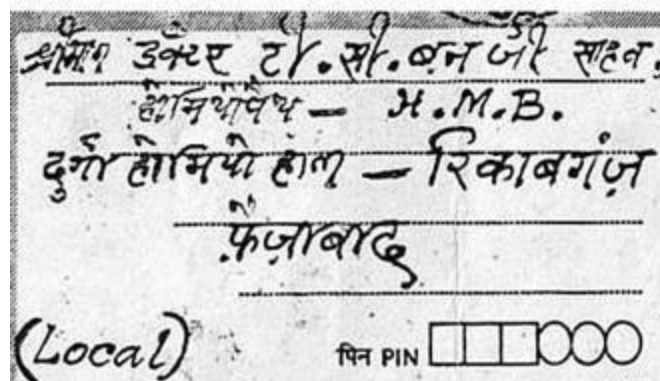 श्रीमान डॅक्टर टी.सी.बनर्जी साहब.
होमियोपैथ — H.M.B.
दुर्गा होमियो हाल — रिकाबगंज़
फ़ैज़ाबाद
(Local) पिन PIN